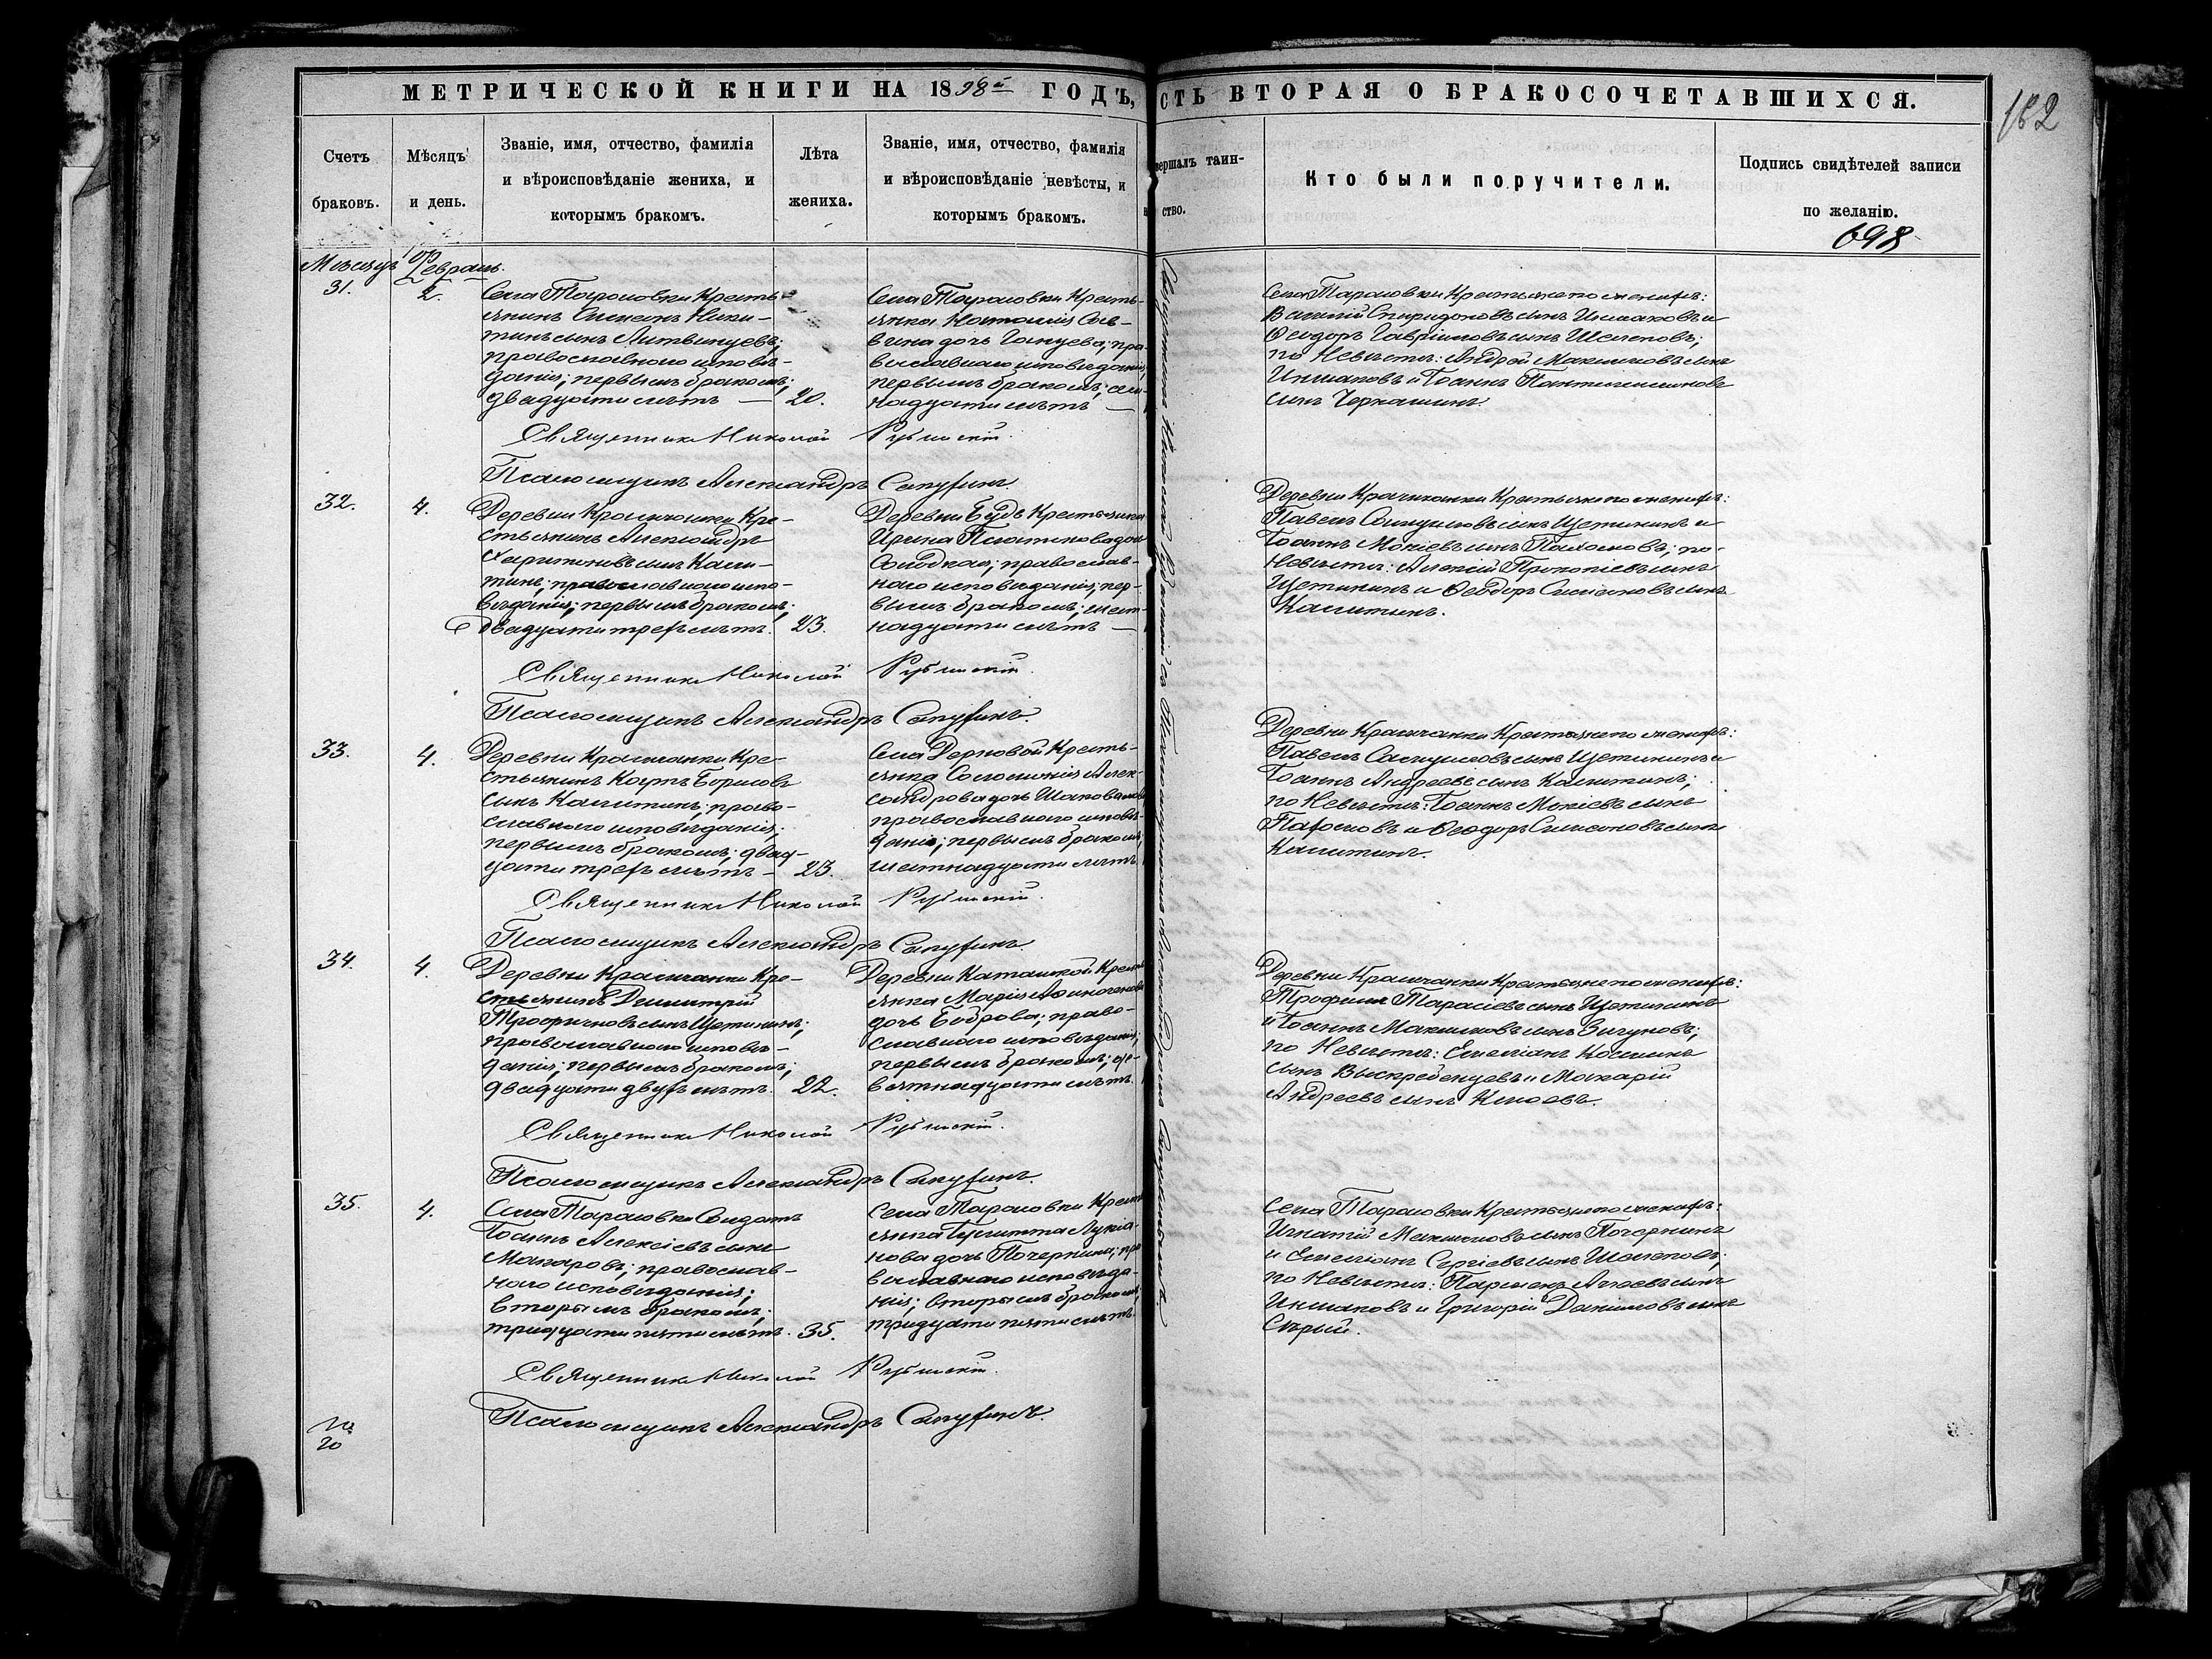 МЕТРИЧЕСКОЙ КНИГИ НА 1898й ГОДЪ,
СТЬ ВТОРАЯ О БРАКОСОЧЕТАВШИХСЯ.
182
Счетъ
браковъ.
Мѣсяцъ
и день.
Званіе, имя, отчество, фамилія
и вѣроисповѣданіе жениха, и
которымъ бракомъ.
Лѣта
жениха.
Званіе, имя, отчество, фамилія
и вѣроисповѣданіе невѣсты, и
которымъ бракомъ.
вершалъ таин-
ство.
Кто были поручители.
Подпись свидѣтелей записи
по желанію.
698
Мѣсяцъ Февраль.
31.
2.
Села Тарасовки Кресть-
янинъ Симеонъ Ники-
тинъ сынъ Литвинцевъ;
православнаго исповѣ-
данія; первымъ бракомъ;
двадцати лѣтъ —
20.
Села Тарасовки Кресть-
янка Наталія Сав-
вина дочь; пра-
вославнаго исповѣданія;
первымъ бракомъ;
надцати лѣтъ —
Села Тарасовки Крестьяне по женихѣ:
Василій Спиридоновъ сынъ Иншаковъ и
Ѳеодоръ Гавріиловъ сынъ Шелеповъ;
по Невѣстѣ: Андрей Максимовъ сынъ
Иншаковъ и Іоаннъ Пантелеимоновъ
сынъ Черкашинъ.
Священникъ Николай
Псаломщикъ Александръ Сапухинъ
32.
4.
Деревни Красничанки Кре-
стьянинъ Александръ
Харитоновъ сынъ Кали-
тинъ; православнаго испо-
вѣданія; первымъ бракомъ;
двадцати трехъ лѣтъ.
23.
Деревни Будъ Крестьянка
Ирина Платонова дочь
Солодкая; православ-
наго исповѣданія; пер-
вымъ бракомъ;
надцати лѣтъ —
Деревни Красничанки Крестьяне по женихѣ:
Павелъ Самуиловъ сынъ Щетининъ и
Іоаннъ Мокіевъ сынъ Пахомовъ; по
Невѣстѣ: Алексій Прокопіевъ сынъ
Щетининъ и Ѳеодоръ Симеоновъ сынъ
Калитинъ.
Священникъ Николай
Псаломщикъ Александръ Сапухинъ.
33.
4.
Деревни Красничанки Кре-
стьянинъ Карпъ Борисовъ
сынъ Калитинъ; право-
славнаго исповѣданія;
первымъ бракомъ; двад-
цати трехъ лѣтъ —
23.
Села Дерновой Кресть-
янка Соломонія Алек-
сандрова дочь
православнаго исповѣ-
данія; первымъ бракомъ;
надцати лѣтъ
Деревни Красничанки Крестьяне по женихѣ:
Павелъ Самуиловъ сынъ Щетининъ и
Іоаннъ Андреевъ сынъ Калитинъ;
по Невѣстѣ: Іоаннъ Мокіевъ сынъ
Пахомовъ и Ѳеодоръ Симеоновъ сынъ
Калитинъ.
Священникъ Николай
Псаломщикъ Александръ Сапухинъ.
34.
4.
Деревни Красничанки Кре-
стьянинъ Димитрій
Трофимовъ сынъ Щетининъ;
православнаго исповѣ-
данія; первымъ бракомъ;
двадцати двухъ лѣтъ.
22.
Деревни Каташкой
янка Марія Аѳиногенова
дочь Боброва; право-
славнаго исповѣданія;
первымъ бракомъ; де-
вятнадцати лѣтъ.
Деревни Красничанки Крестьяне по женихѣ:
Трофимъ Тарасіевъ сынъ Щетининъ
и Іоаннъ Максимовъ сынъ Зигуновъ;
по Невѣстѣ: Емеліанъ Косминъ
сынъ Выскребенцевъ и Макарій
Андреевъ сынъ
Священникъ Николай
Псаломщикъ Александръ Сапухинъ.
35.
4.
Села Тарасовки Солдатъ
Іоаннъ Алексіевъ сынъ
Макаровъ; православ-
наго исповѣданія;
вторымъ бракомъ;
тридцати пяти лѣтъ.
35.
Села Тарасовки
янка Іулитта Лукіа-
нова дочь Почернина; пра-
вославнаго исповѣда-
нія; вторымъ бракомъ;
тридцати пяти лѣтъ.
Села Тарасовки Крестьяне по женихѣ:
Игнатій Максимовъ сынъ Почернинъ
и Емеліанъ Сергіевъ сынъ Шелеповъ;
по Невѣстѣ: Парменъ сынъ
Иншаковъ и Григорій Даніиловъ сынъ
Сѣрый.
Священникъ Николай
Псаломщикъ Александръ Сапухинъ.